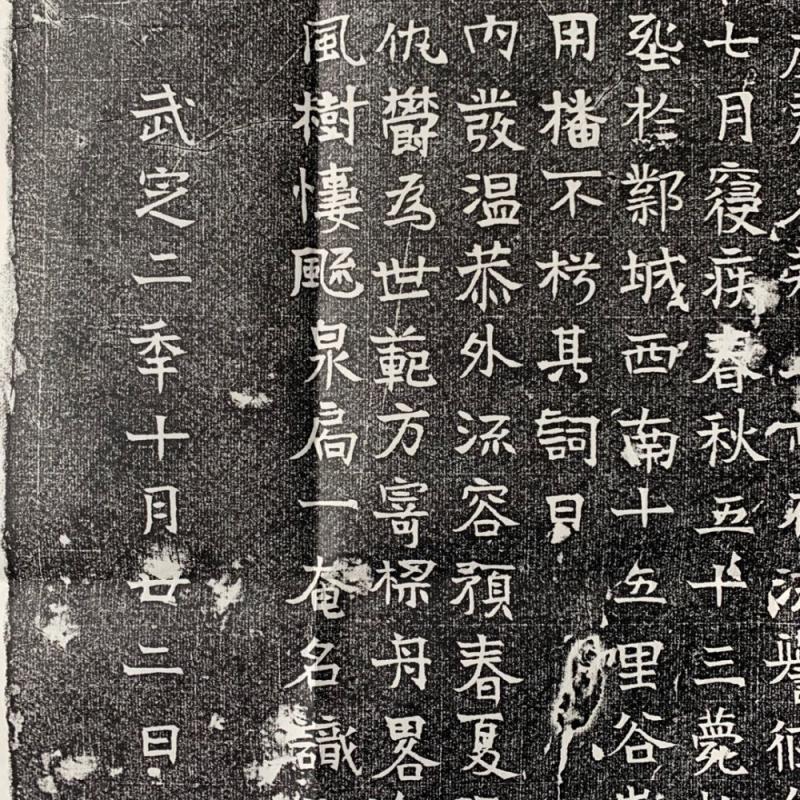 七月寑疾春秋五十三薨
垐於鄴城西南十五里谷
用播不朽其詞曰
内發温恭外流容預春夏
仇欝為世範方寄樑舟畧
風樹悽飈泉扃一奄名識
武㝎二秊十月廿二日